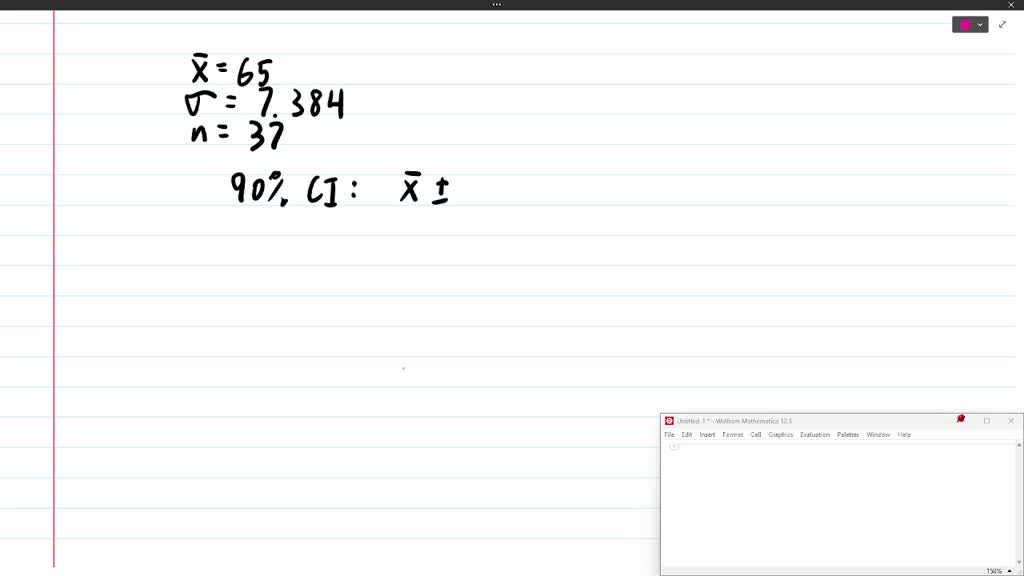 x̄ = 65
σ = 7.384
n = 37
90% CI: x̄ ±
Untitled-1 * - Wolfram Mathematica 12.1
File Edit Insert Format Cell Graphics Evaluation Palettes Window Help
150%